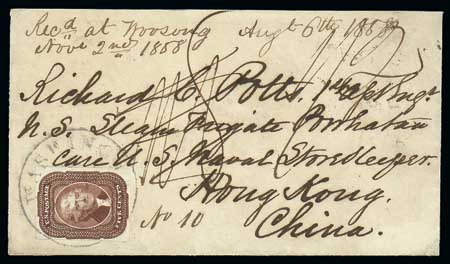 Rec'd at Woosong Augt 6th 1858
Novr 2nd 1858
Richard C. Potts, 1st Asst Engr
U.S. Steam Frigate Powhatan
Care U.S. Naval Storekeeper.
Hong Kong.
China.
No 10
WASHIN
U.S. POSTAGE
FIVE CENTS